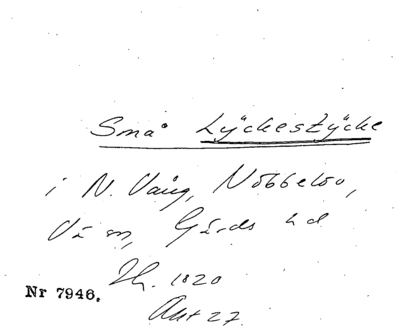 Små Lÿckestÿcke
i N. Vång, Nöbbelöv,
Gärds hd
Nr 7946.
1820
Akt 27